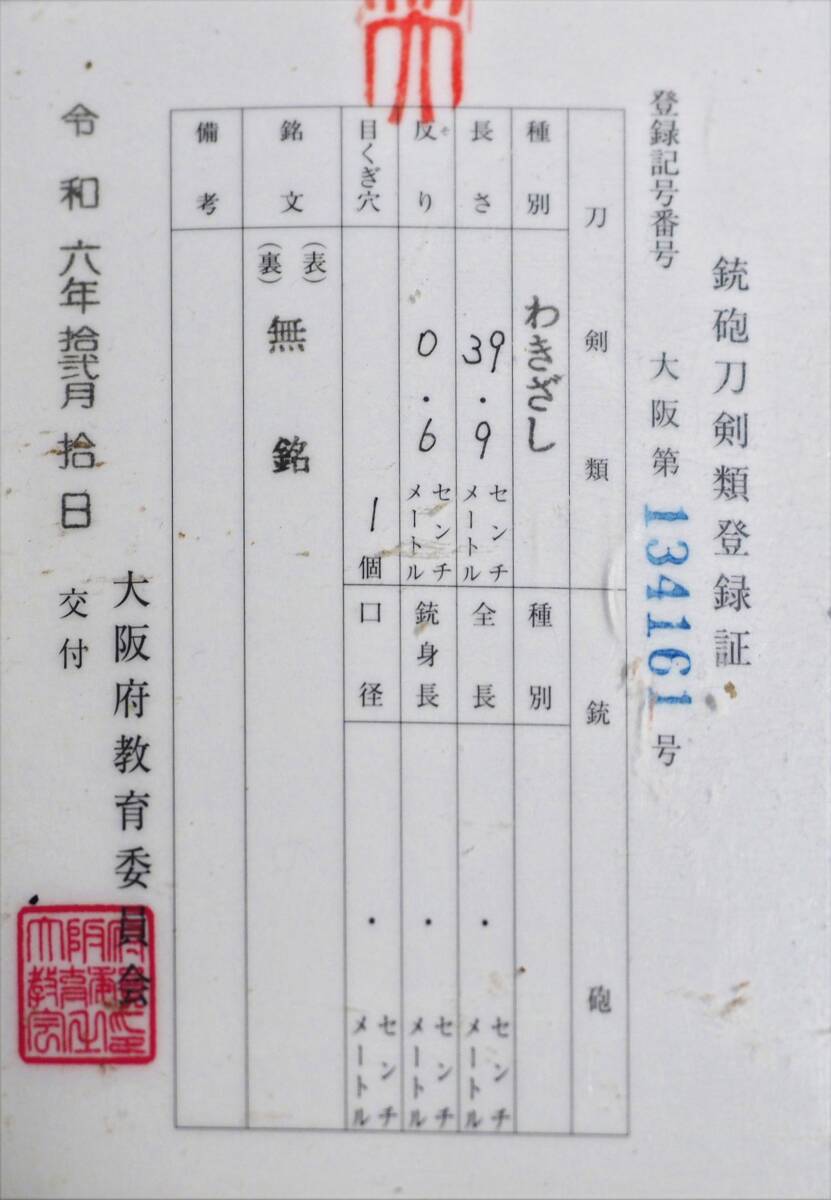 銃砲刀剣類登録証
登録記号番号 大阪第134161号
刀剣類
種別 わきざし
長さ 39.9センチメートル
反り 0.6センチメートル
そ
目くぎ穴 1個
銘文
(表)
(裏)
無銘
備考
銃砲
種別
全長 ・ センチメートル
銃身長 ・ センチメートル
口径 ・ センチメートル
令和六年拾弐月拾日 交付
大阪府教育委員会